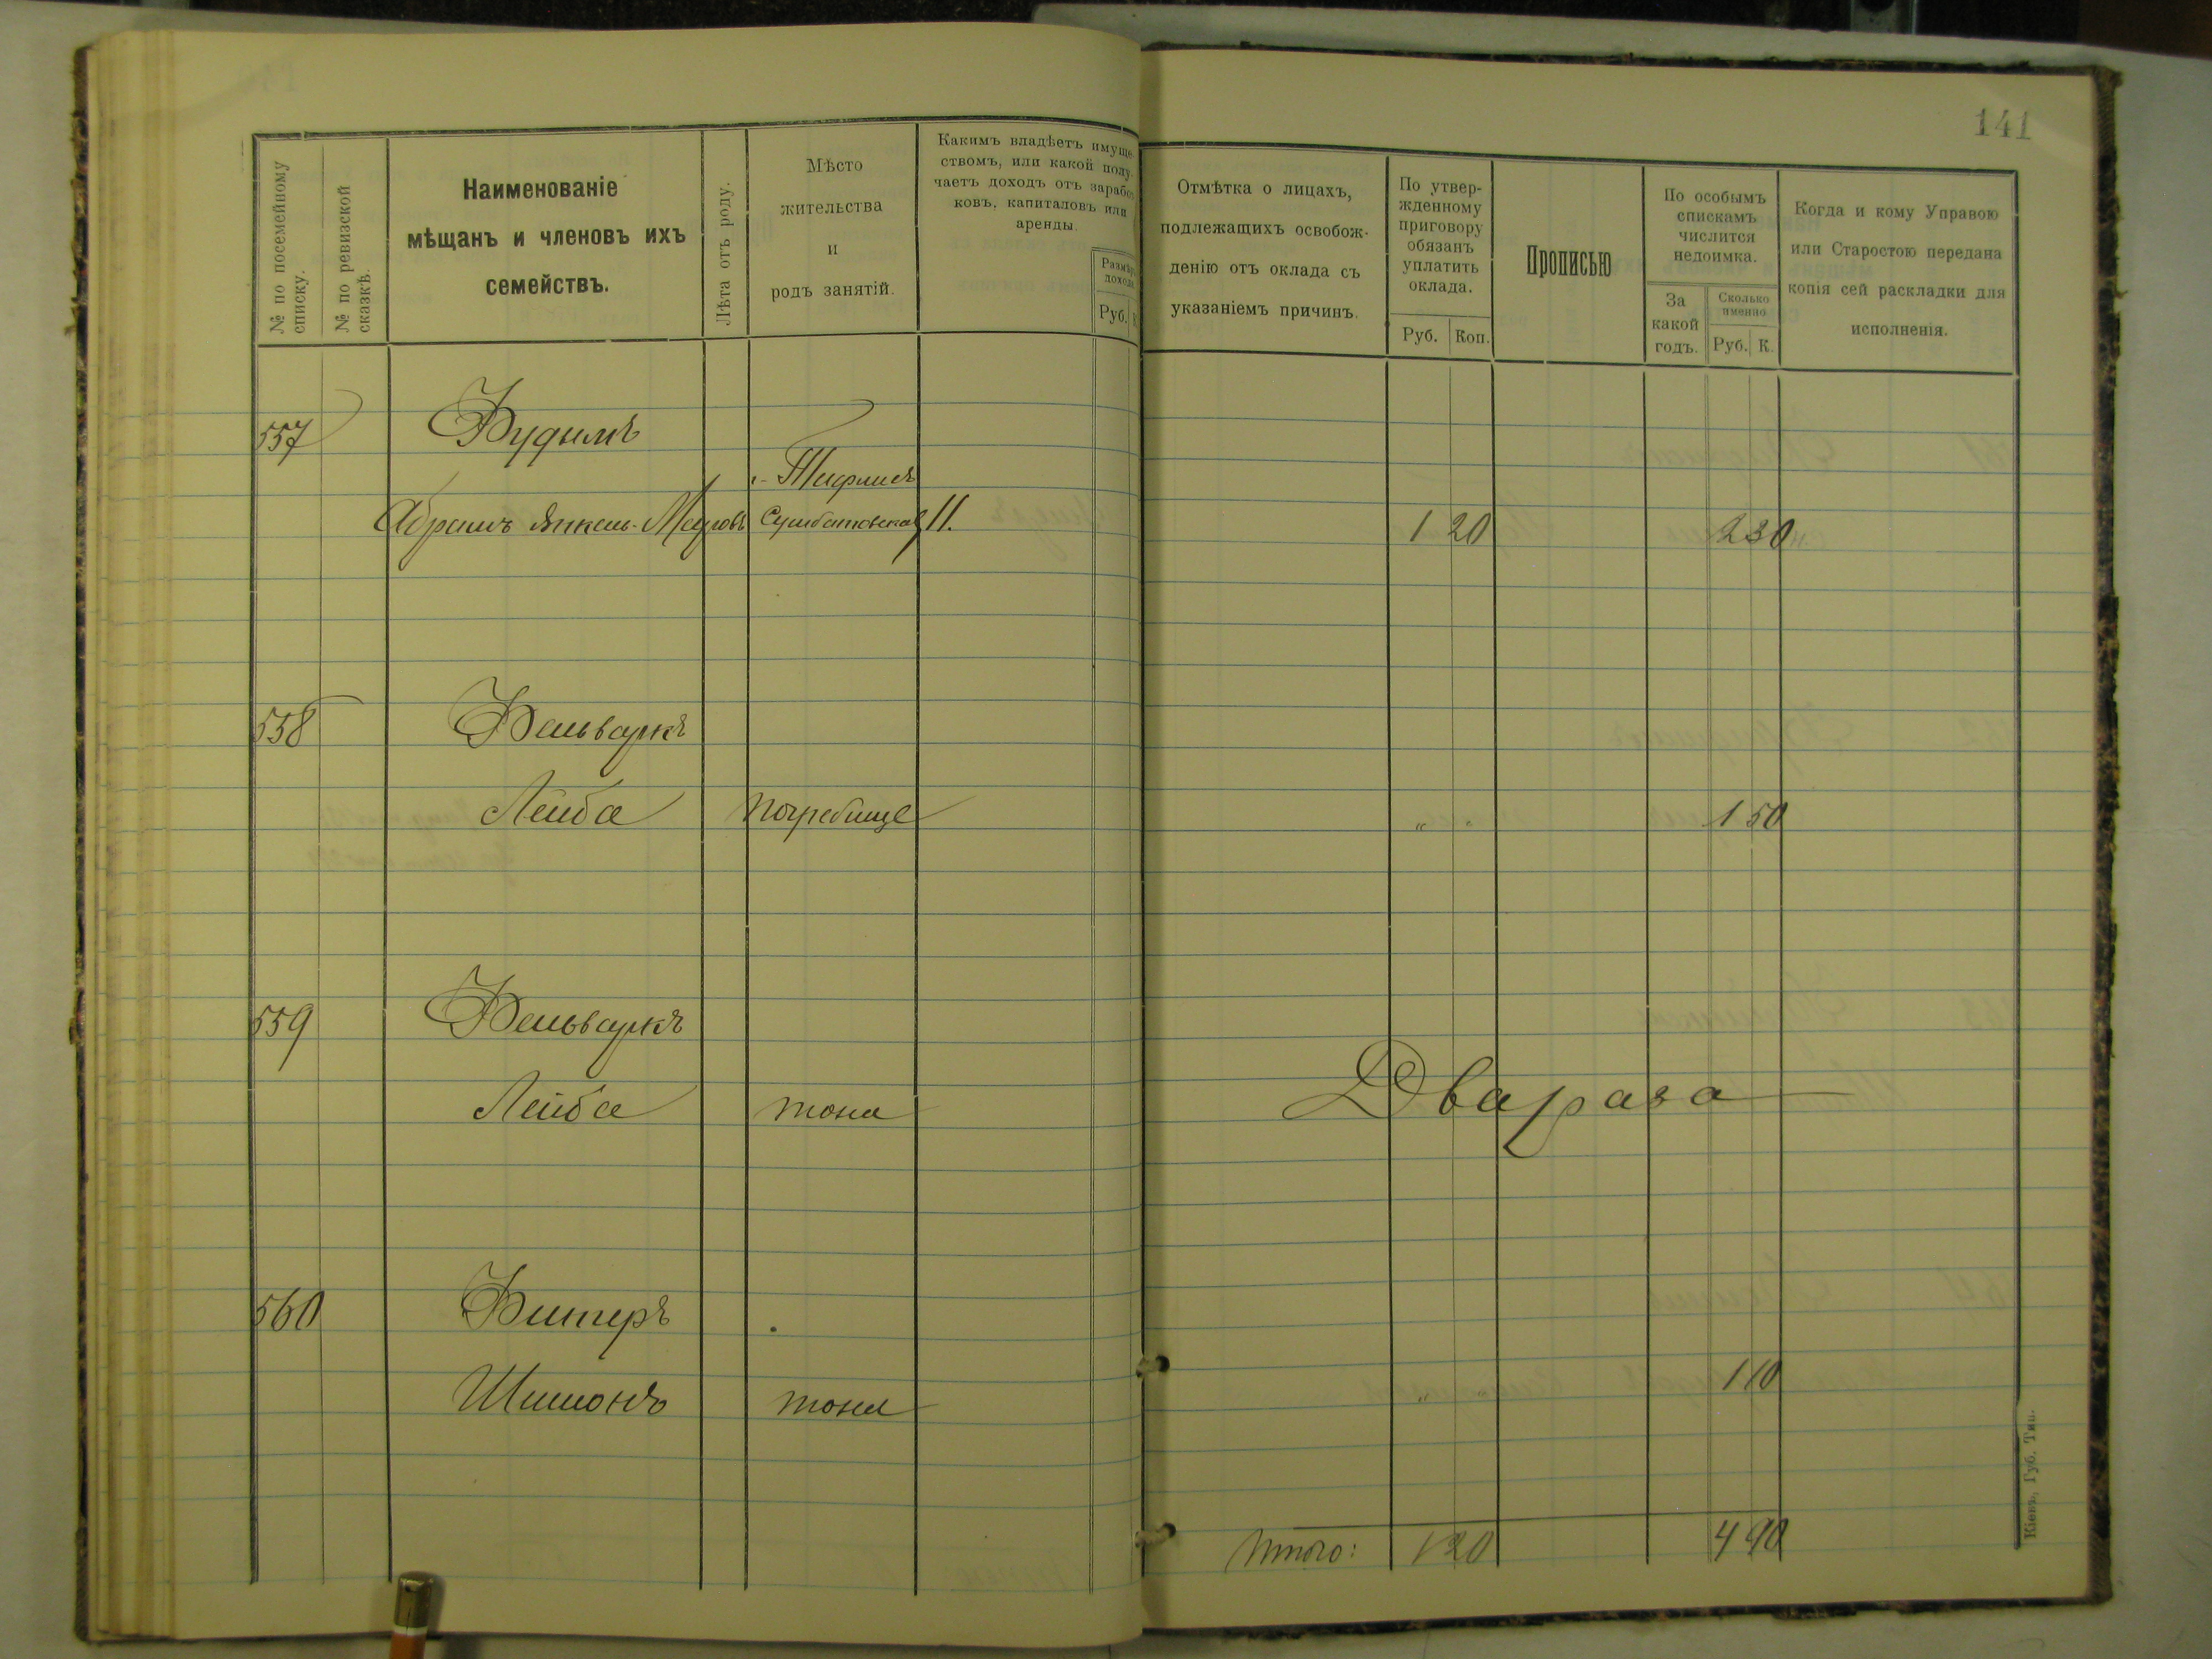 141
№ по посемейному списку.
№ по ревизской сказкѣ.
Наименованіе
мѣщанъ и членовъ ихъ
семействъ.
Лѣта отъ роду.
Мѣсто
жительства
и
родъ занятій.
Какимъ владѣетъ имуще
ствомъ, или какой полу
чаетъ доходъ отъ зарабо
ковъ, капиталовъ или
аренды.
Размѣръ
дохода
Руб.
Отмѣтка о лицахъ,
подлежащихъ освобож-
денію отъ оклада съ
указаніемъ причинъ.
По утвер-
жденному
приговору
обязанъ
уплатить
оклада.
Руб. Коп.
Прописью
По особымъ
спискамъ
числится
недоимка.
За
какой
годъ.
Сколько
именно
Руб. К.
Когда и кому Управою
или Старостою передана
копія сей раскладки для
исполненія.
557 Фудымъ
г. Тифлисъ
Абрамъ Янкель-Меэровъ Сумбатовская 11. 1 20 2 30
558 Фольваркъ
Лейба Погребище " " 1 50
559 Фольваркъ
Лейба тоже Два раза
560 Фитеръ
Шимонъ тоже " " 1 10
Итого: 1 20 4 90
Кіевъ, Губ. Тип.